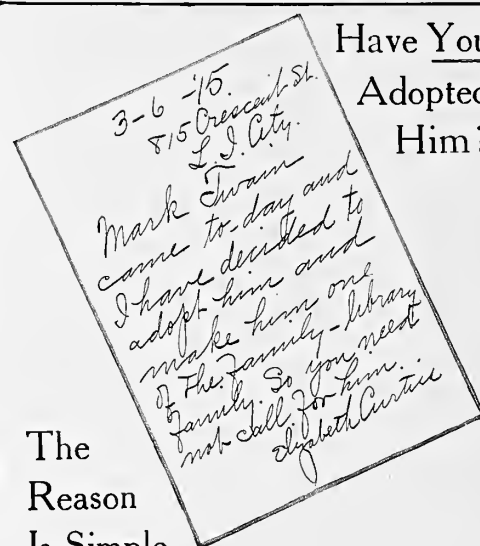 Have You
Adopted
Him?
3-6-'15.
815 Crescent St.
L. I. City.
Mark Twain
came to-day and
I have decided to
adopt him and
make him one
of the family-library
family. So you need
not call for him.
Elizabeth Curtis
The
Reason
Is Simple